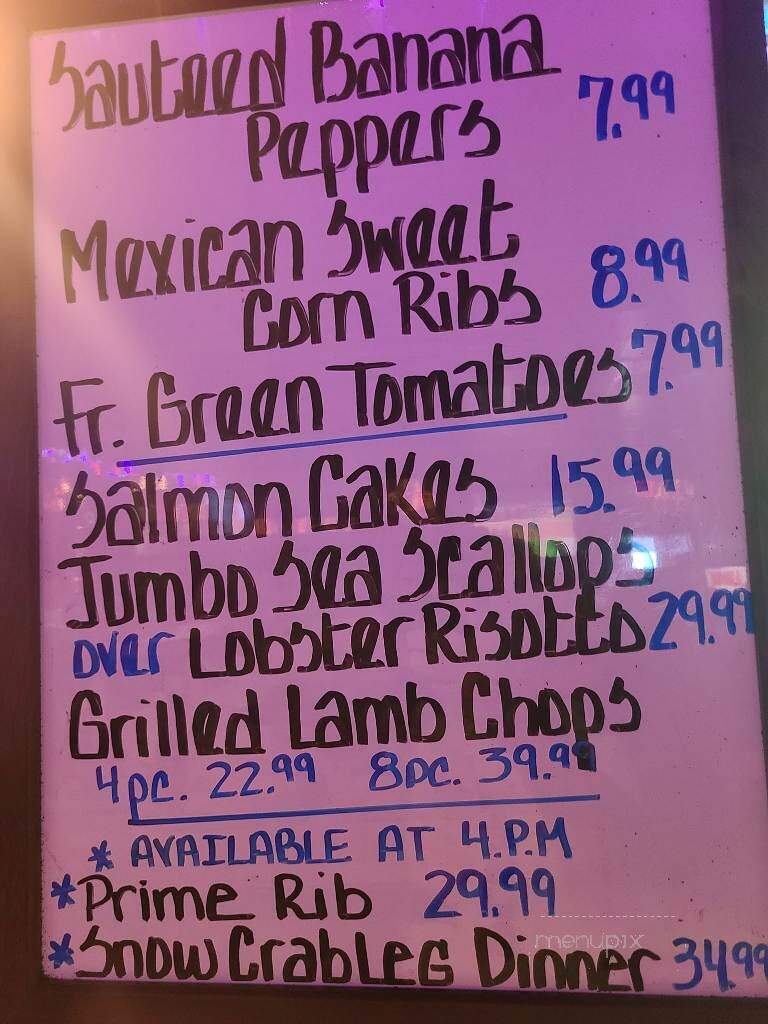 Sauteed Banana
Peppers 7.99
Mexican Sweet
Corn Ribs 8.99
Fr. Green Tomatoes 7.99
Salmon Cakes 15.99
Jumbo Sea Scallops
over Lobster Risotto 29.99
Grilled Lamb Chops
4pc. 22.99 8pc. 39.99
* AVAILABLE AT 4.P.M
*Prime Rib 29.99
menupix
*Snow Crab Leg Dinner 34.99